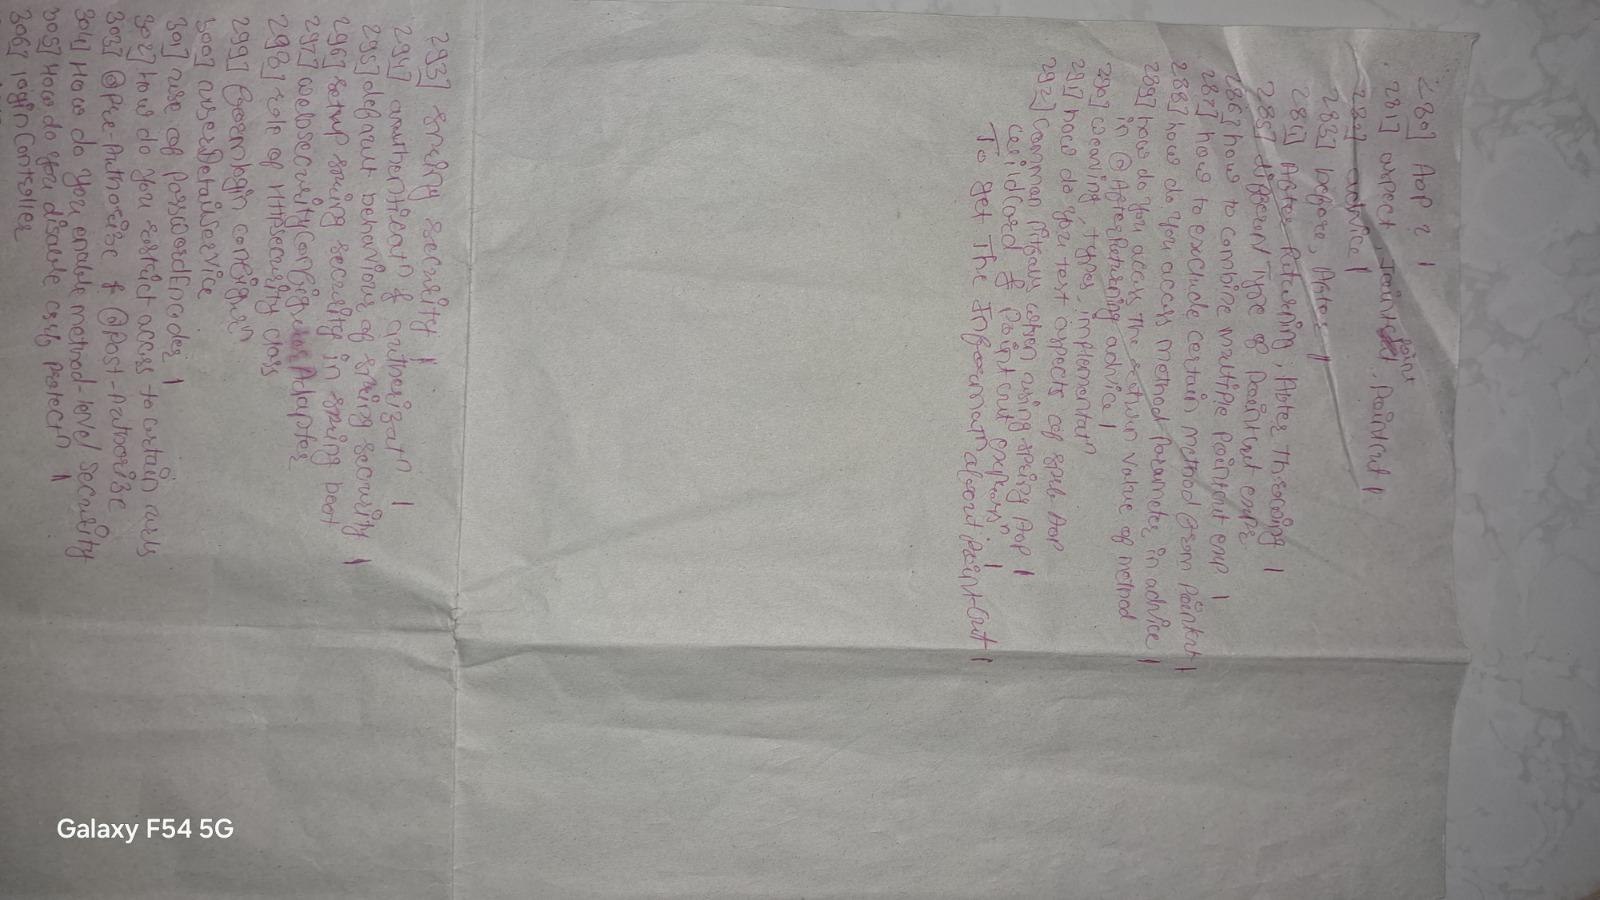 280] AOP ? |
281] aspect, Joint point, Pointcut |
282] advice |
283] before, After ||
284] After Returning, After Throwing |
285] different Type of Pointcut expr
286] how to combine multiple pointcut exp. |
287] how to exclude certain method from Pointcut |
288] how do you access method parameter in advice |
289] how do you access the return value of method
in @AfterReturning advice |
290] weaving, types, implementatⁿ
291] how do you test aspects of AOP
292] common pitfalls when using spring AOP |
wildcard & Point cut expressⁿ. |
To get The Informatⁿ about Point-Cut |
293] spring security |
294] authenticatⁿ & authorizatⁿ |
295] default behaviour of spring security |
296] setup spring security in spring boot
297] websecurityConfigurerAdapter
298] role of Httpsecurity class
299] formlogin configurⁿ
300] userDetailService
301] use of PasswordEncoder |
302] how do you restrict access to certain urls
303] @Pre-Authorize & @Post-Authorize
304] How do you enable method-level security
305] How do you disable csrf protectⁿ |
306] loginController